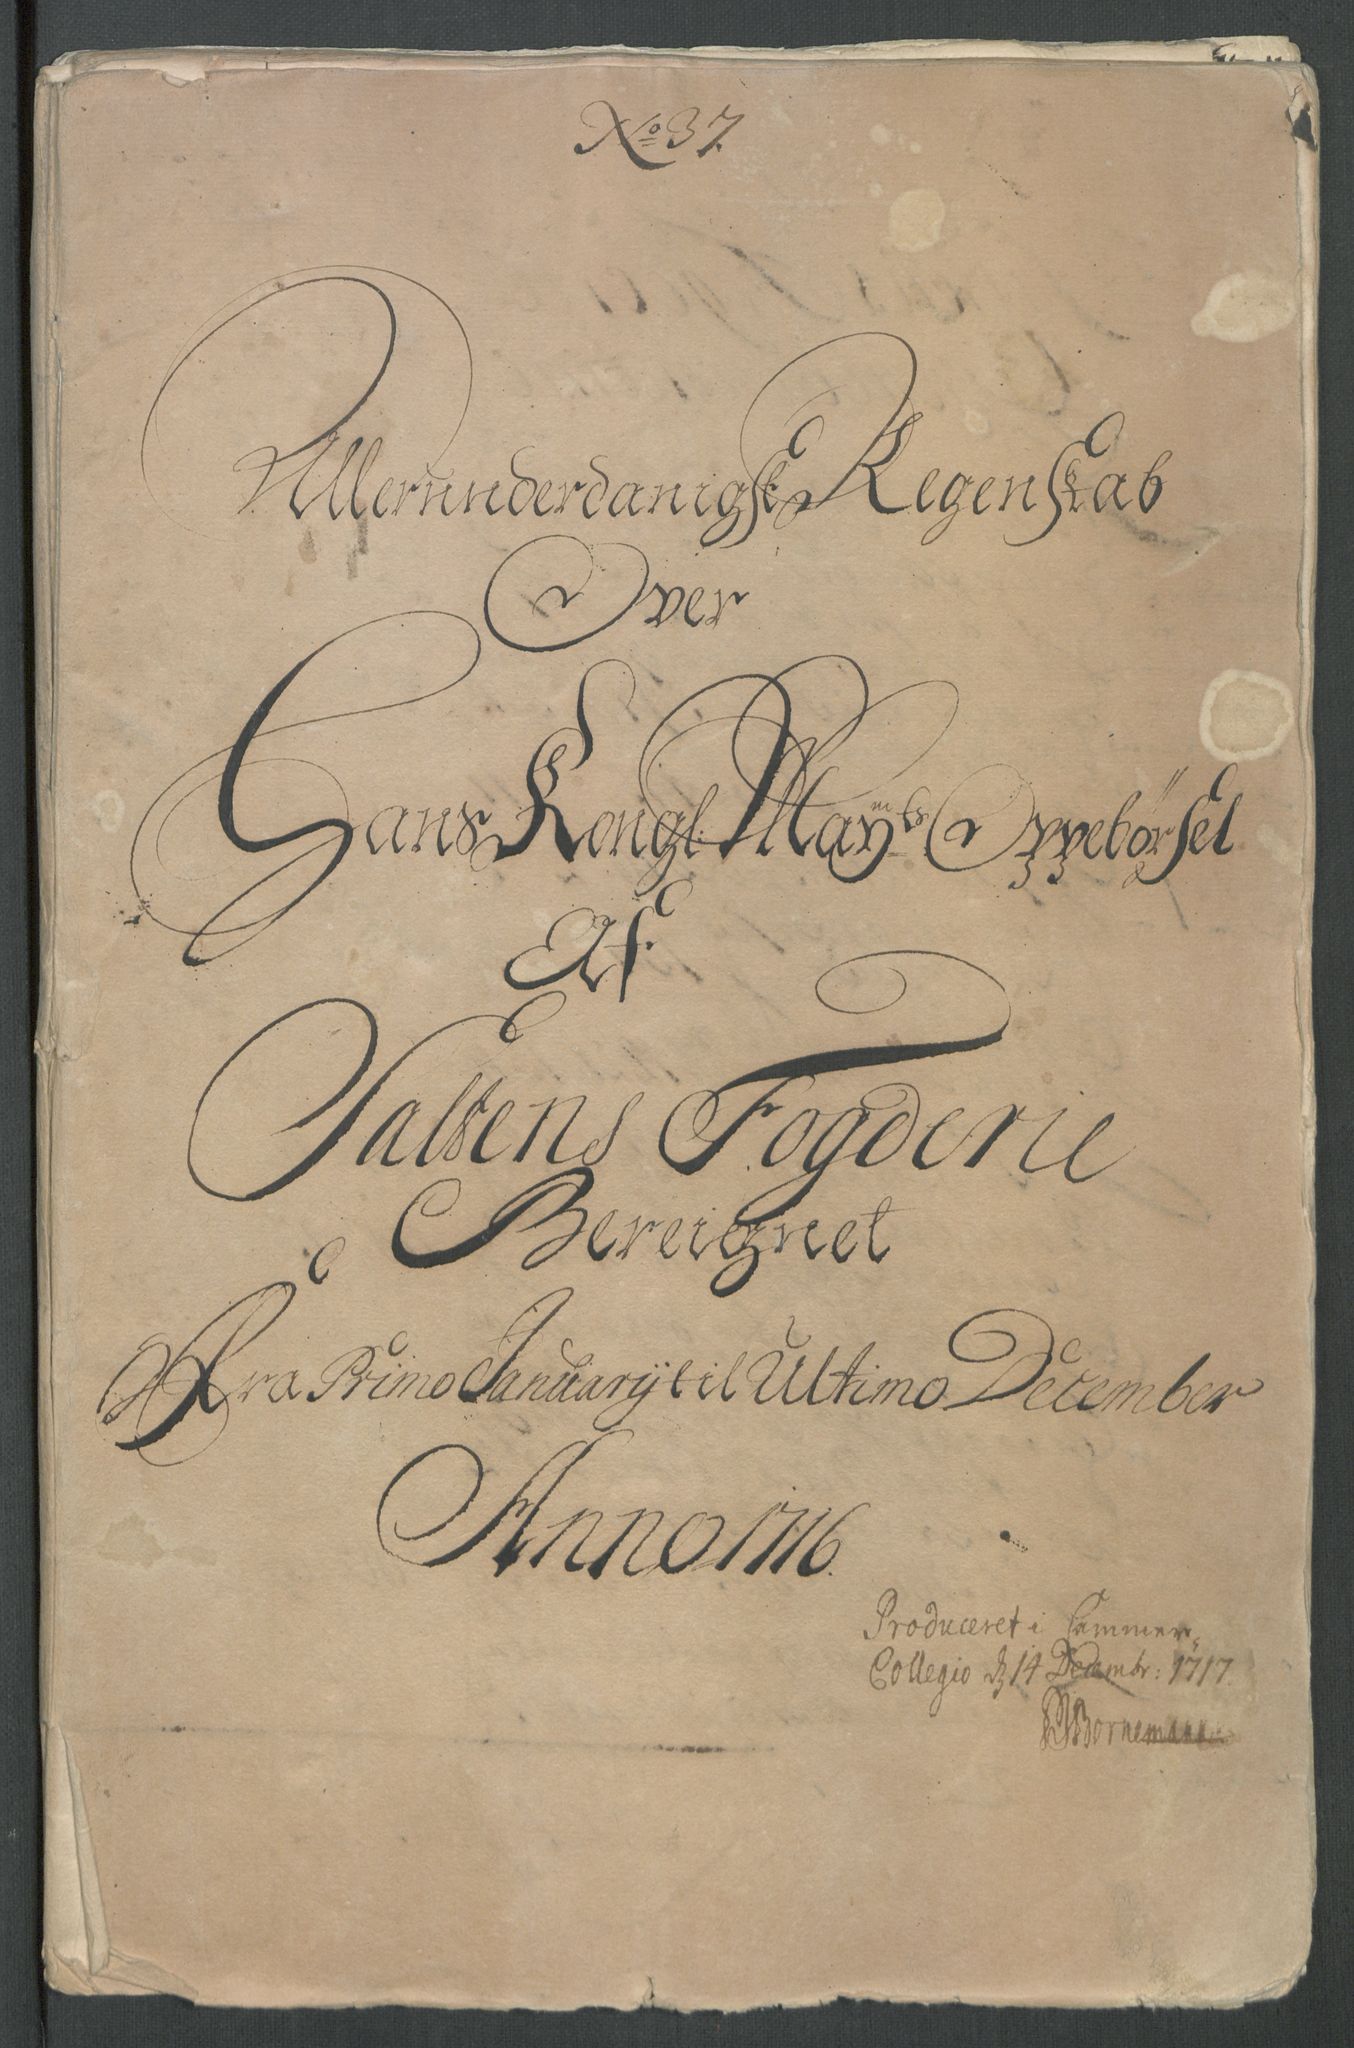 No 37.
Allerunderdanigste Regenskab
Over
Hans Kongl: Mayts Oppebörsel
Af
Saltens Fogderie
Bereignet
Fra Primo Januarÿ til Ultimo December
Anno 1716.
Produceret i Cammer-
Collegio d 14 Decembr: 1717.
Bornemann